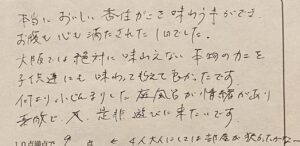 本当においしい香住がにを味わう事ができ
お腹も心も満たされた1日でした。
大阪では絶対に味わえない本物のカニを
子供達にも味わってもらえて良かったです
何よりふじんまりした庭風呂が情緒があり
素敵で、又、是非遊びに来たいです。
10点満点で 9 点 ← 4人大人にしては部屋が狭かったかな〜